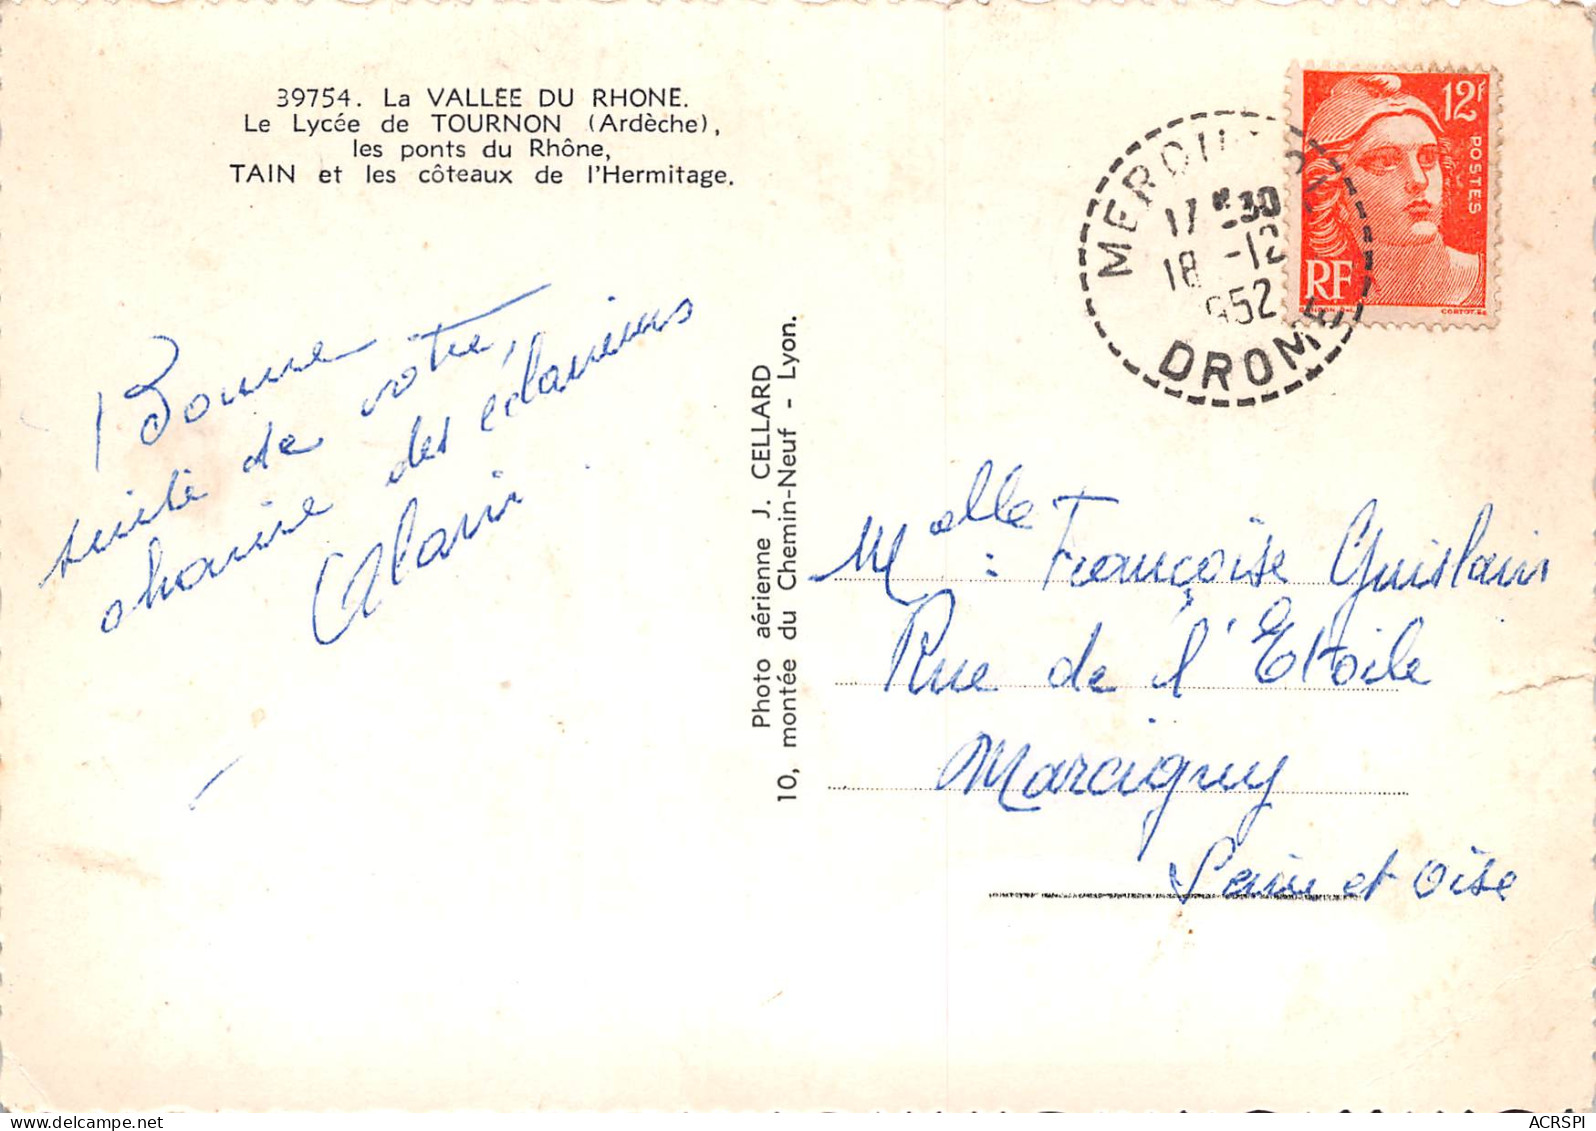 39754. La VALLEE DU RHONE.
Le Lycée de TOURNON (Ardèche),
les ponts du Rhône,
TAIN et les côteaux de l'Hermitage.
Bonne
suite de votre
chaine des éclaireurs
Alain
Photo aérienne J. CELLARD
10, montée du Chemin-Neuf - Lyon.
12F
POSTES
RF
CORTOT.
17 30
18 -12
952
DROME
Melle : Françoise Guislain
Rue de l'Etoile
Marcigny
Seine et Oise
ACRSPI